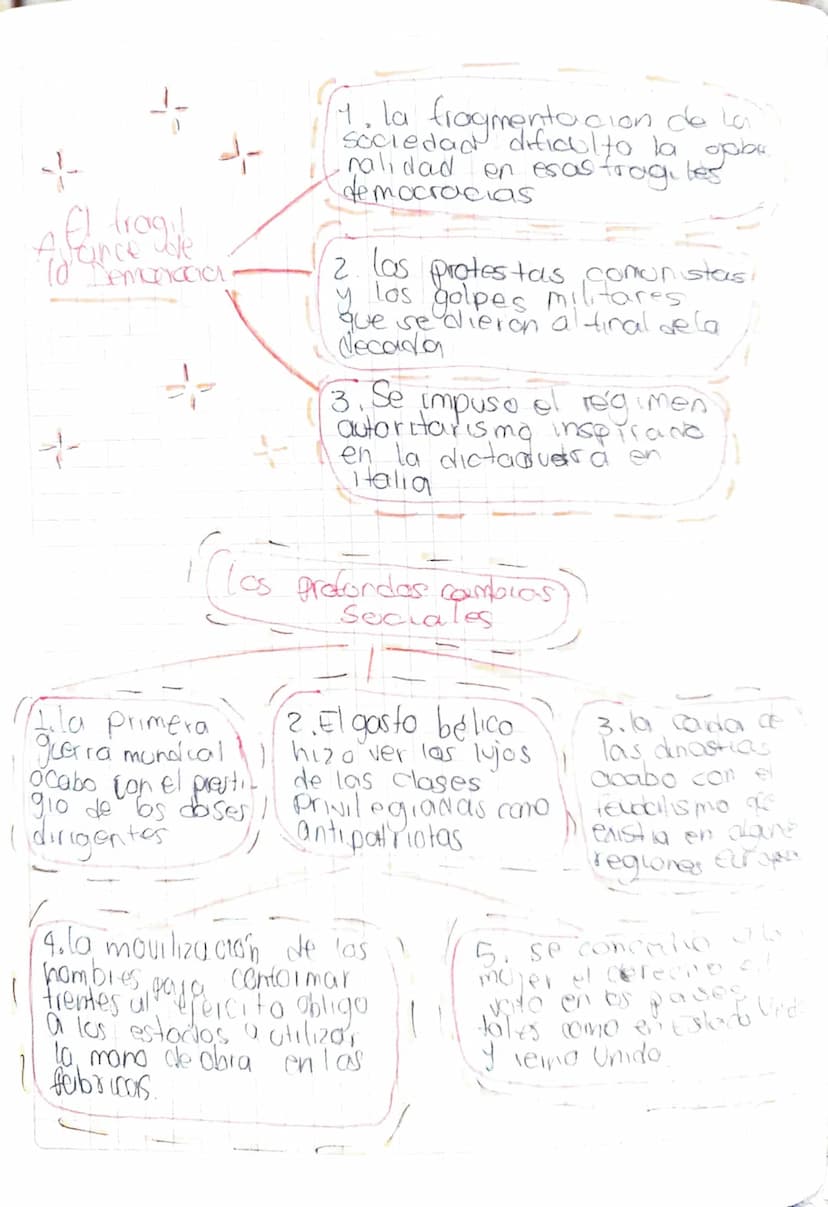 El fragil
Avance de
la Democracia
1. la fragmentacion de la
sociedad dificulto la gobe
nalidad en esas fragiles
democracias
2. las protestas comunistas
y los golpes militares
que se dieron al final de la
decada
3. Se impuso el régimen
autoritarismo inspirado
en la dictadura en
italia
los profondos cambios
sociales
1. la primera
guerra mundial
acabo con el presti-
gio de los
dirigentes
2. El gasto bélico
hizo ver los lujos
de las clases
privilegiadas como
antipatriotas
3. la caida de
las dinastias
acabo con el
feudalismo
existia en
regiones
4. la movilización de los
hombres para
frentes al ejercito obligo
a los estados a utilizar
la mano de obra en las
fabricas.
5. se
mujer el derecho
voto en los paises
tales como en
y reino Unido